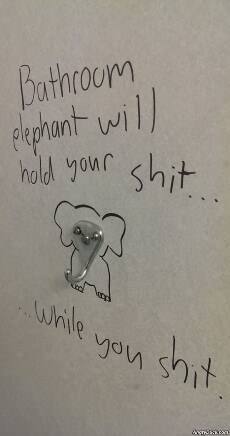 Bathroom
elephant will
hold your shit...
...while you shit.